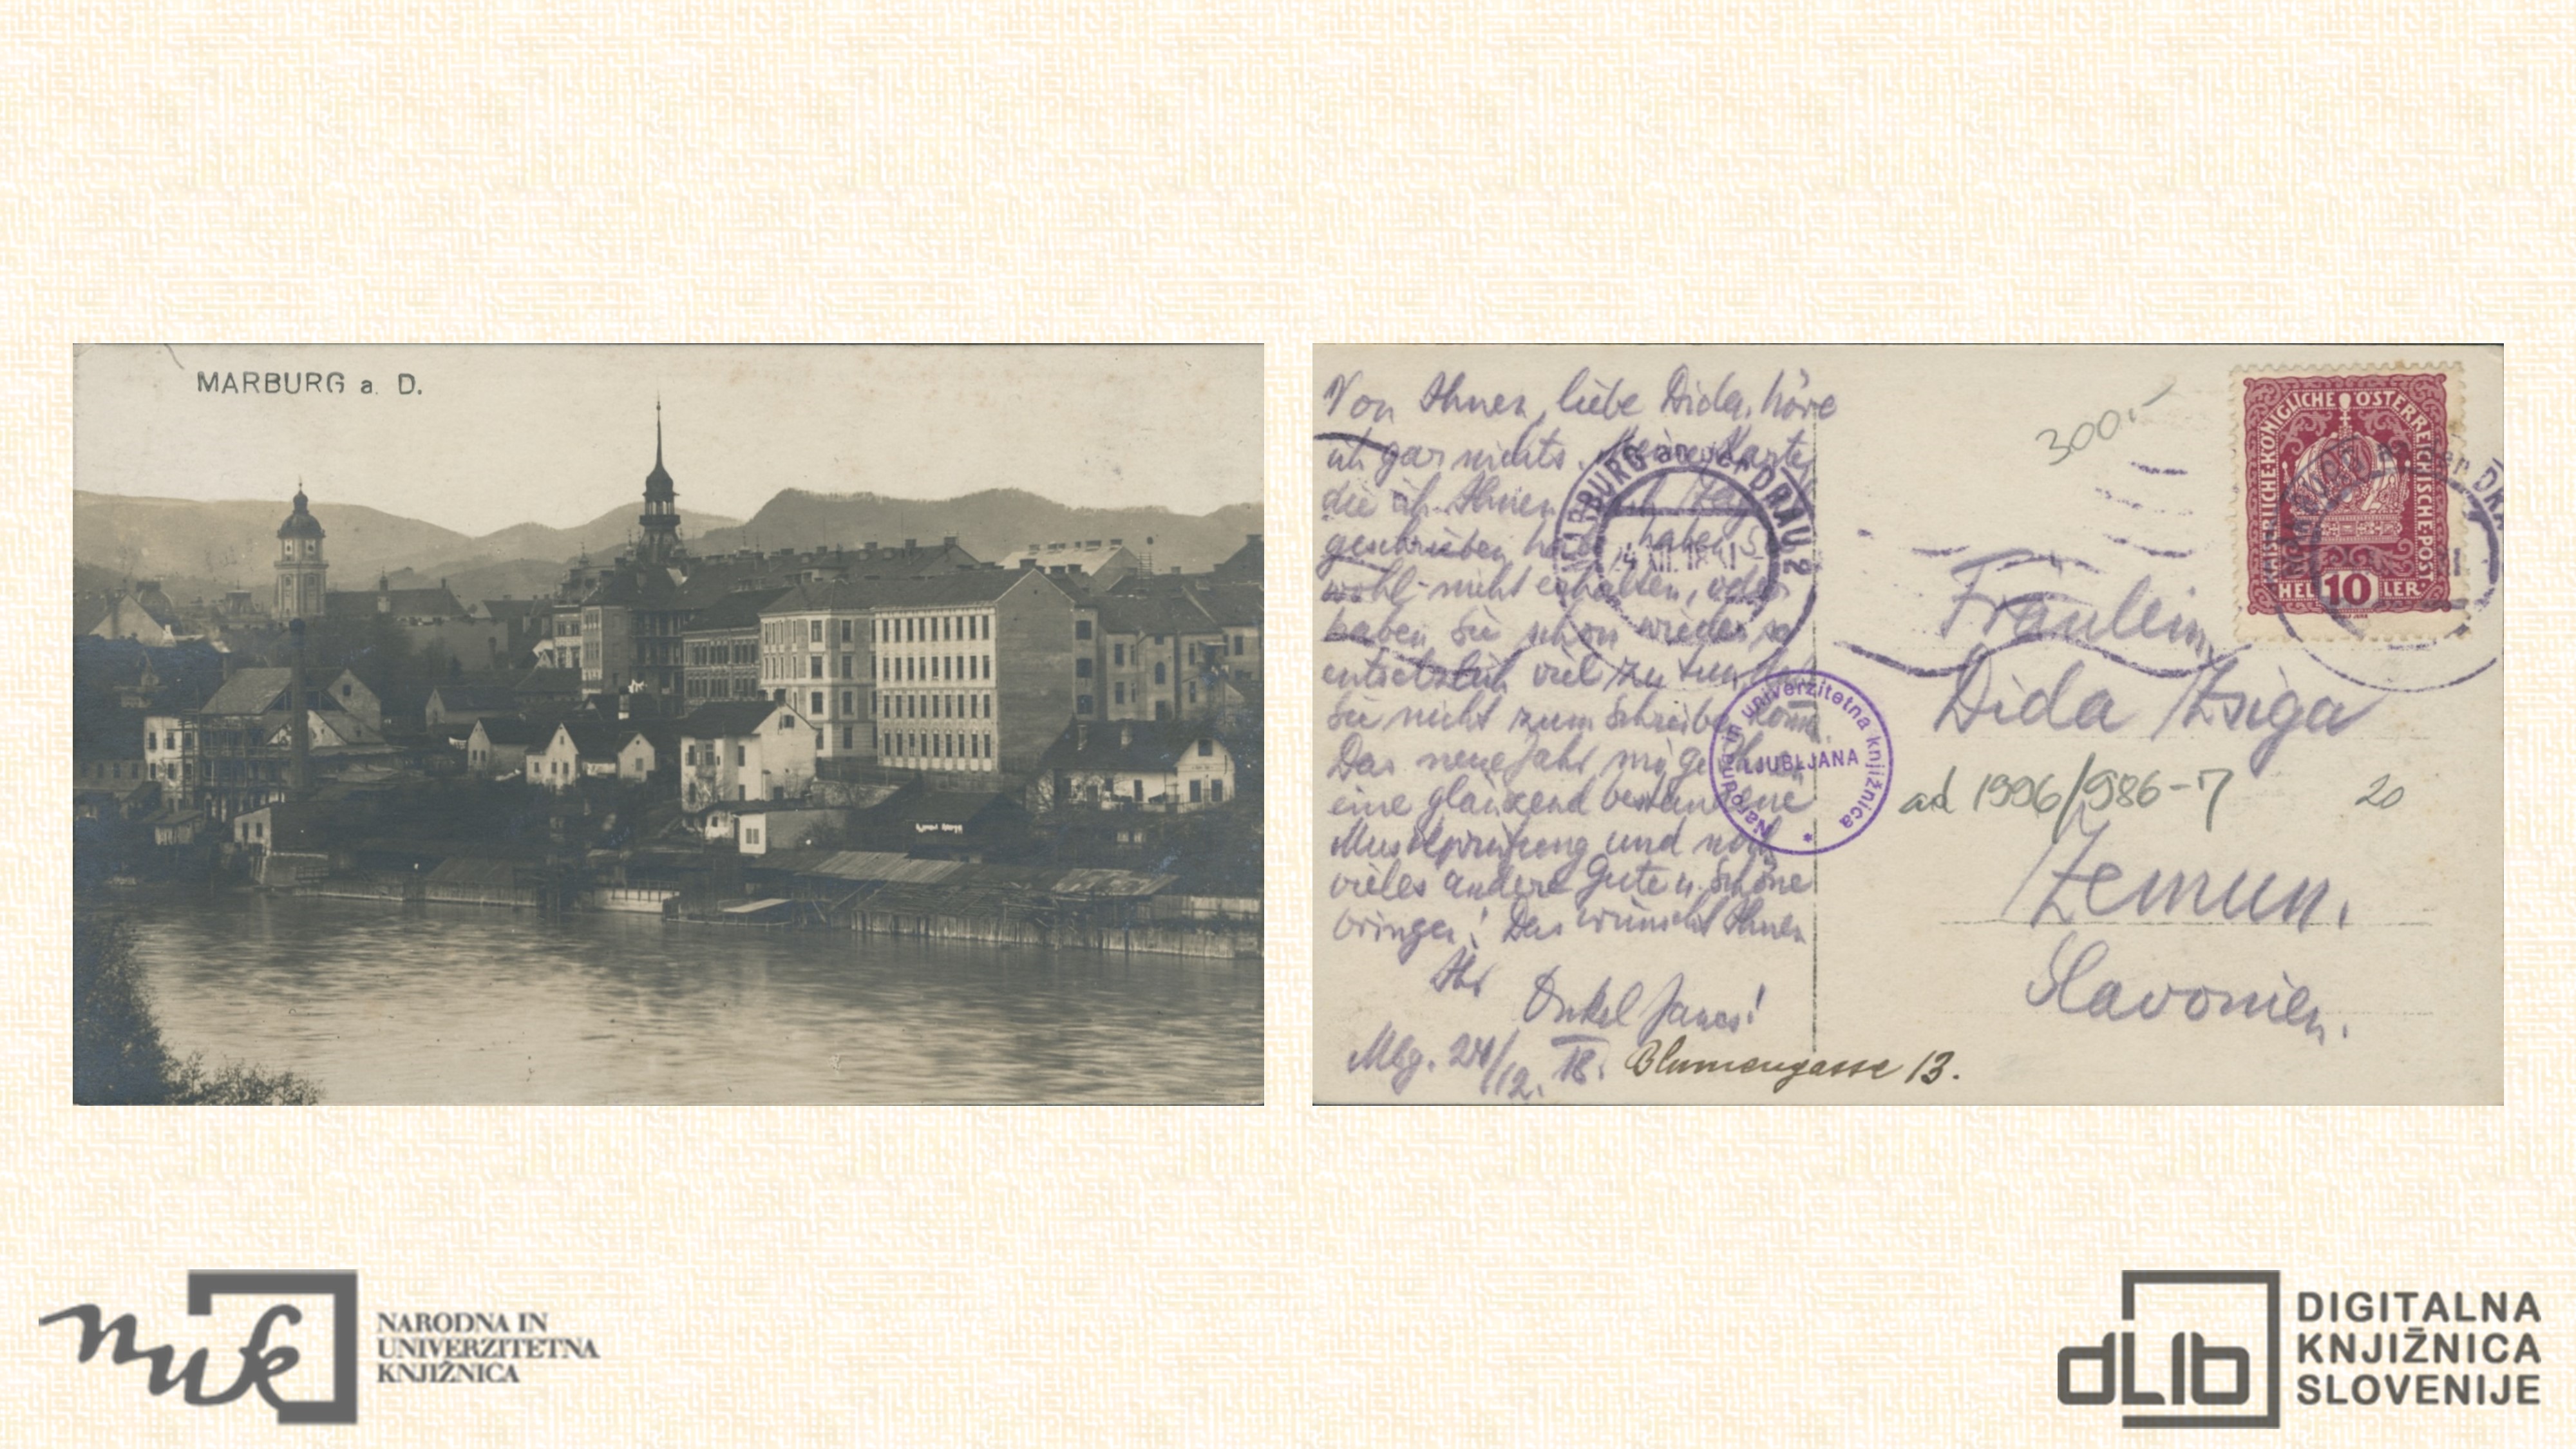 MARBURG a. D.
Von Ihnen, liebe Dida, höre
ich gar nichts. Meine Karte,
die ich Ihnen
geschrieben habe, haben Sie
wohl nicht erhalten, oder
haben Sie schon wieder so
entsetzlich viel zu tun, daß
Sie nicht zum Schreiben
Das neue Jahr möge Ihnen
eine glänzend bestandene
Musikprüfung und noch
vieles andere Gute u. Schöne
bringen! Das wünscht Ihnen
Ihr
Onkel
Mbg. 24/12. 18. Blumengasse 13.
MARBURG an der DRAU 2
Narodna in univerzitetna knjižnica
LJUBLJANA
300.-
KAISERLICHE KÖNIGLICHE ÖSTERREICHISCHE POST
HEL 10 LER
Fräulein
Dida Zsiga
ad 1996/986-7 20
Zemun.
Slavonien.
nuk
NARODNA IN
UNIVERZITETNA
KNJIŽNICA
dLib
DIGITALNA
KNJIŽNICA
SLOVENIJE